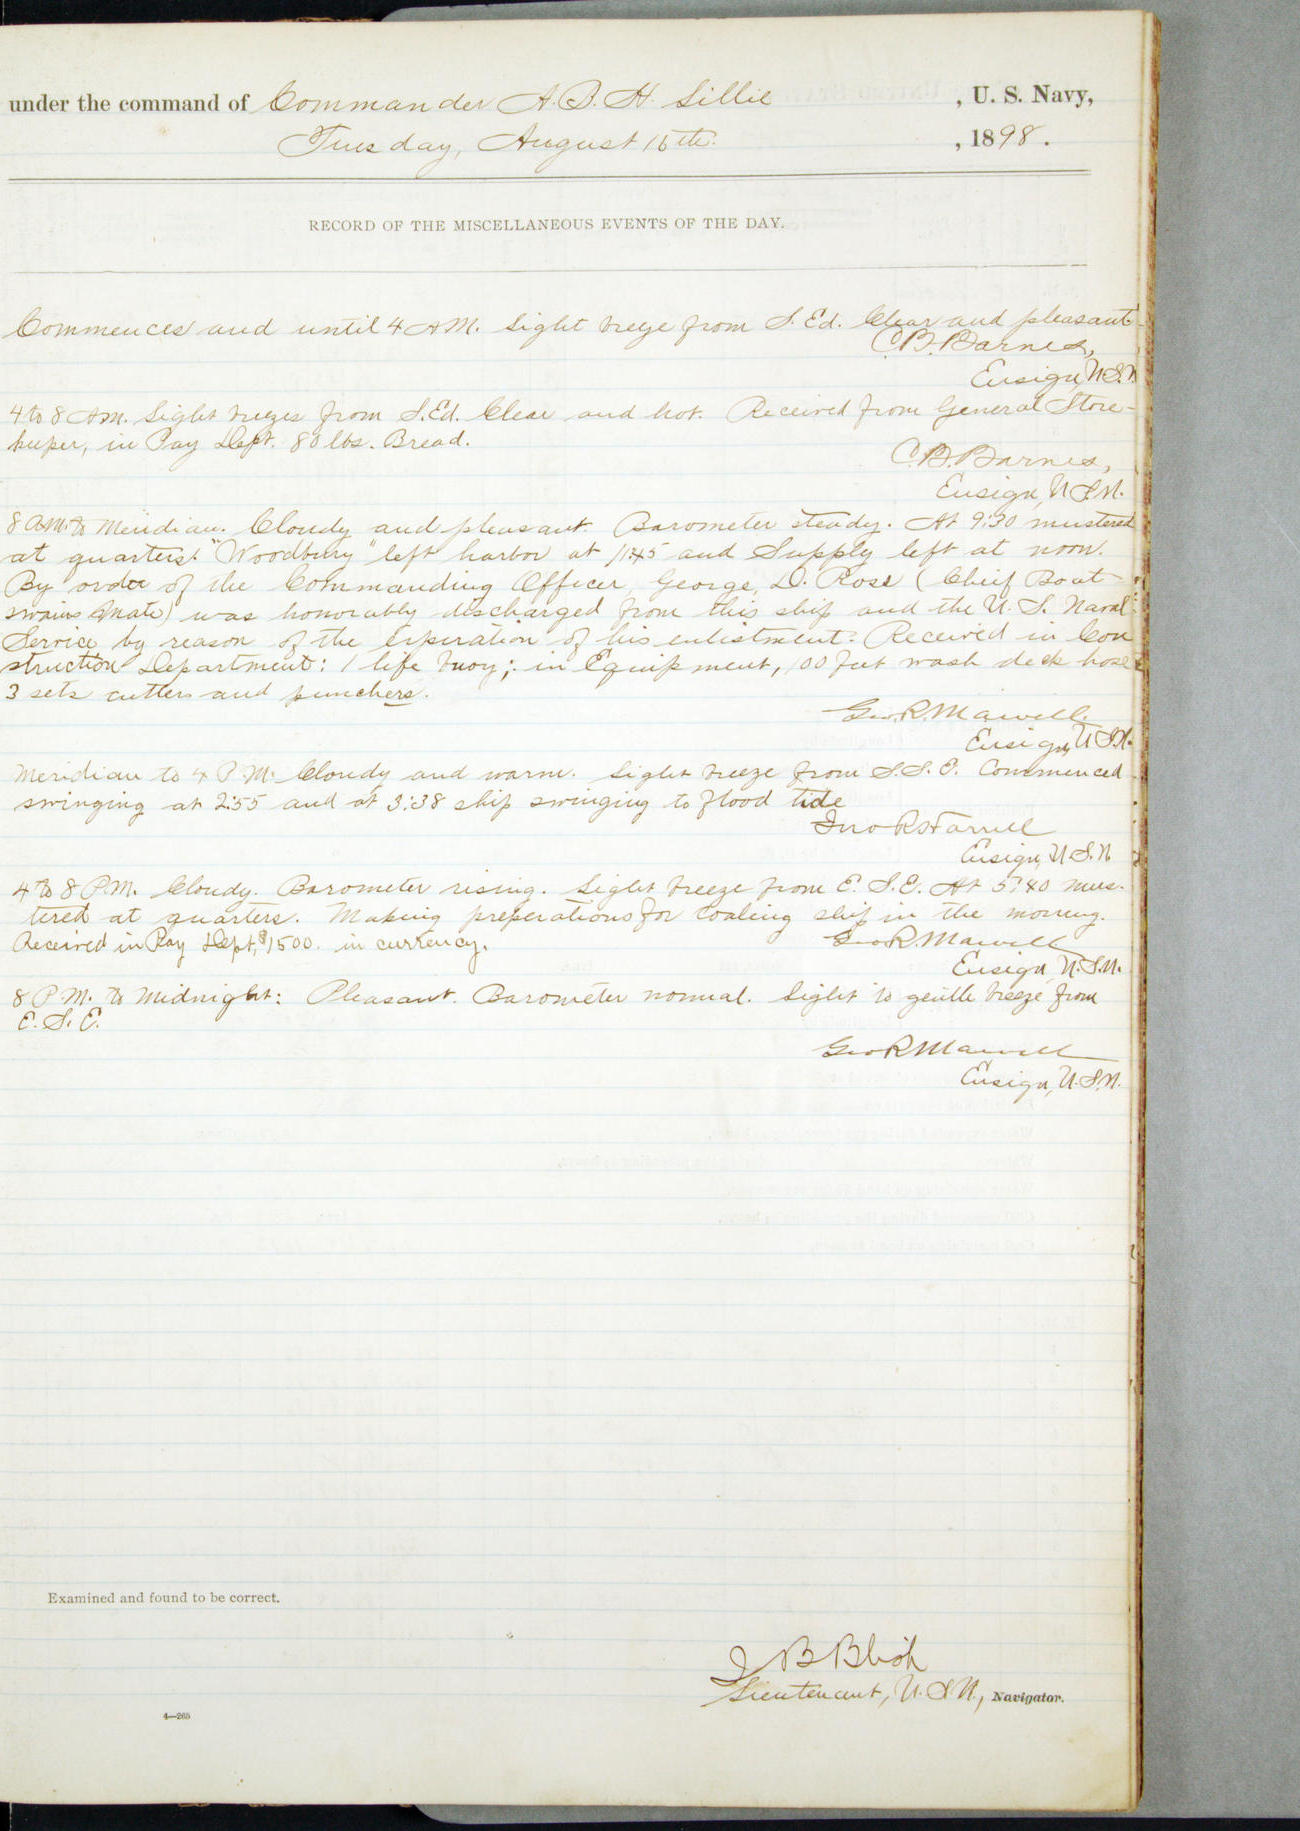 under the command of Commander A. B. H. Lillie, U. S. Navy,
Tuesday, August 16th., 1898.
RECORD OF THE MISCELLANEOUS EVENTS OF THE DAY.
Commences and until 4 A.M. Light breeze from S. Ed. Clear and pleasant.
C. B. Barnes,
Ensign, U.S.N.
4 to 8 A.M. Light breezes from S. Ed. Clear and hot. Received from General Store-
keeper, in Pay Dept. 80 lbs. Bread.
C. B. Barnes,
Ensign, U.S.N.
8 A.M. to Meridian. Cloudy and pleasant. Barometer steady. At 9:30 mustered
at quarters. "Woodbury" left harbor at 11:45 and Supply left at noon.
By order of the Commanding Officer, George, D. Rose (Chief Boat-
swains Mate) was honorably discharged from this ship and the U. S. Naval
Service by reason of the experation of his enlistment. Received in Con
struction Department: 1 life buoy; in Equipment, 100 feet wash deck hose
3 sets cutters and punchers.
Geo. R. Marvell
Ensign, U.S.N.
Meridian to 4 P.M. Cloudy and warm. Light breeze from S. S. E. Commenced
swinging at 2:55 and at 3:38 ship swinging to flood tide
Ensign, U.S.N.
4 to 8 P.M. Cloudy. Barometer rising. Light breeze from E. S. E. At 5:40 mus-
tered at quarters. Making preperations for coaling ship in the morning.
Received in Pay Dept., $1500. in currency.
Geo R. Marvell
Ensign, U.S.N.
8 P.M. to Midnight: Pleasant. Barometer normal. Light to gentle breeze from
E. S. E.
Geo R. Marvell
Ensign, U.S.N.
Examined and found to be correct.
J B Blish
Lieutenant, U.S.N., Navigator.
4—265